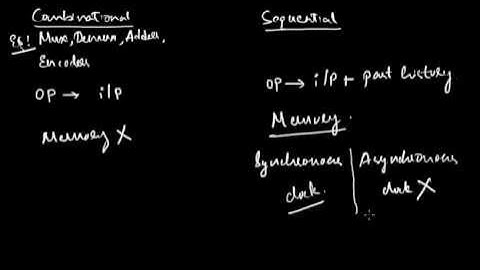 Combinational
Eg! Mux, Demux, Adders,
Encoders
OP → i/p
Memory X
Sequential
OP → i/p + past history
Memory.
Synchronous | Asynchronous
clock. | clock X